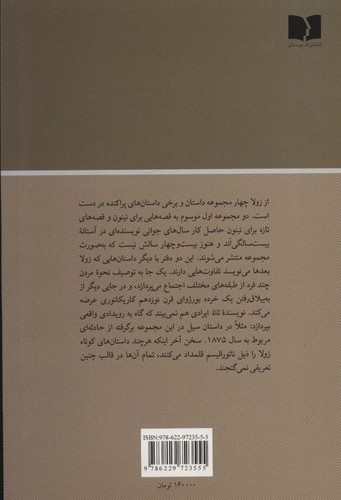 انتشارات دوستان
از زولا چهار مجموعه داستان و برخی داستان‌های پراکنده در دست
است. دو مجموعه اول موسوم به قصه‌هایی برای نینون و قصه‌های
تازه برای نینون حاصل کار سال‌های جوانی نویسنده‌ای در آستانهٔ
بیست‌سالگی‌اند و هنوز بیست‌وچهار سالش نیست که به‌صورت
مجموعه منتشر می‌شوند. این دو دفتر با دیگر داستان‌هایی که زولا
بعدها می‌نویسد تفاوت‌هایی دارند. یک جا به توصیف نحوهٔ مردن
چند فرد از طبقه‌های مختلف اجتماع می‌پردازد، و در جایی دیگر از
به‌ییلاق‌رفتن یک خرده بورژوای قرن نوزدهم کاریکاتوری عرضه
می‌کند. نویسندهٔ نانا ایرادی هم نمی‌بیند که گاه به رویدادی واقعی
بپردازد: مثلاً در داستان سیل در این مجموعه برگرفته از حادثه‌ای
مربوط به سال ۱۸۷۵. سخن آخر اینکه هرچند داستان‌های کوتاه
زولا را ذیل ناتورالیسم قلمداد می‌کنند، تمام آن‌ها در قالب چنین
تعریفی نمی‌گنجند.
ISBN: 978-622-97235-5-5
9 786229 723555
۱۶۰۰۰۰ تومان